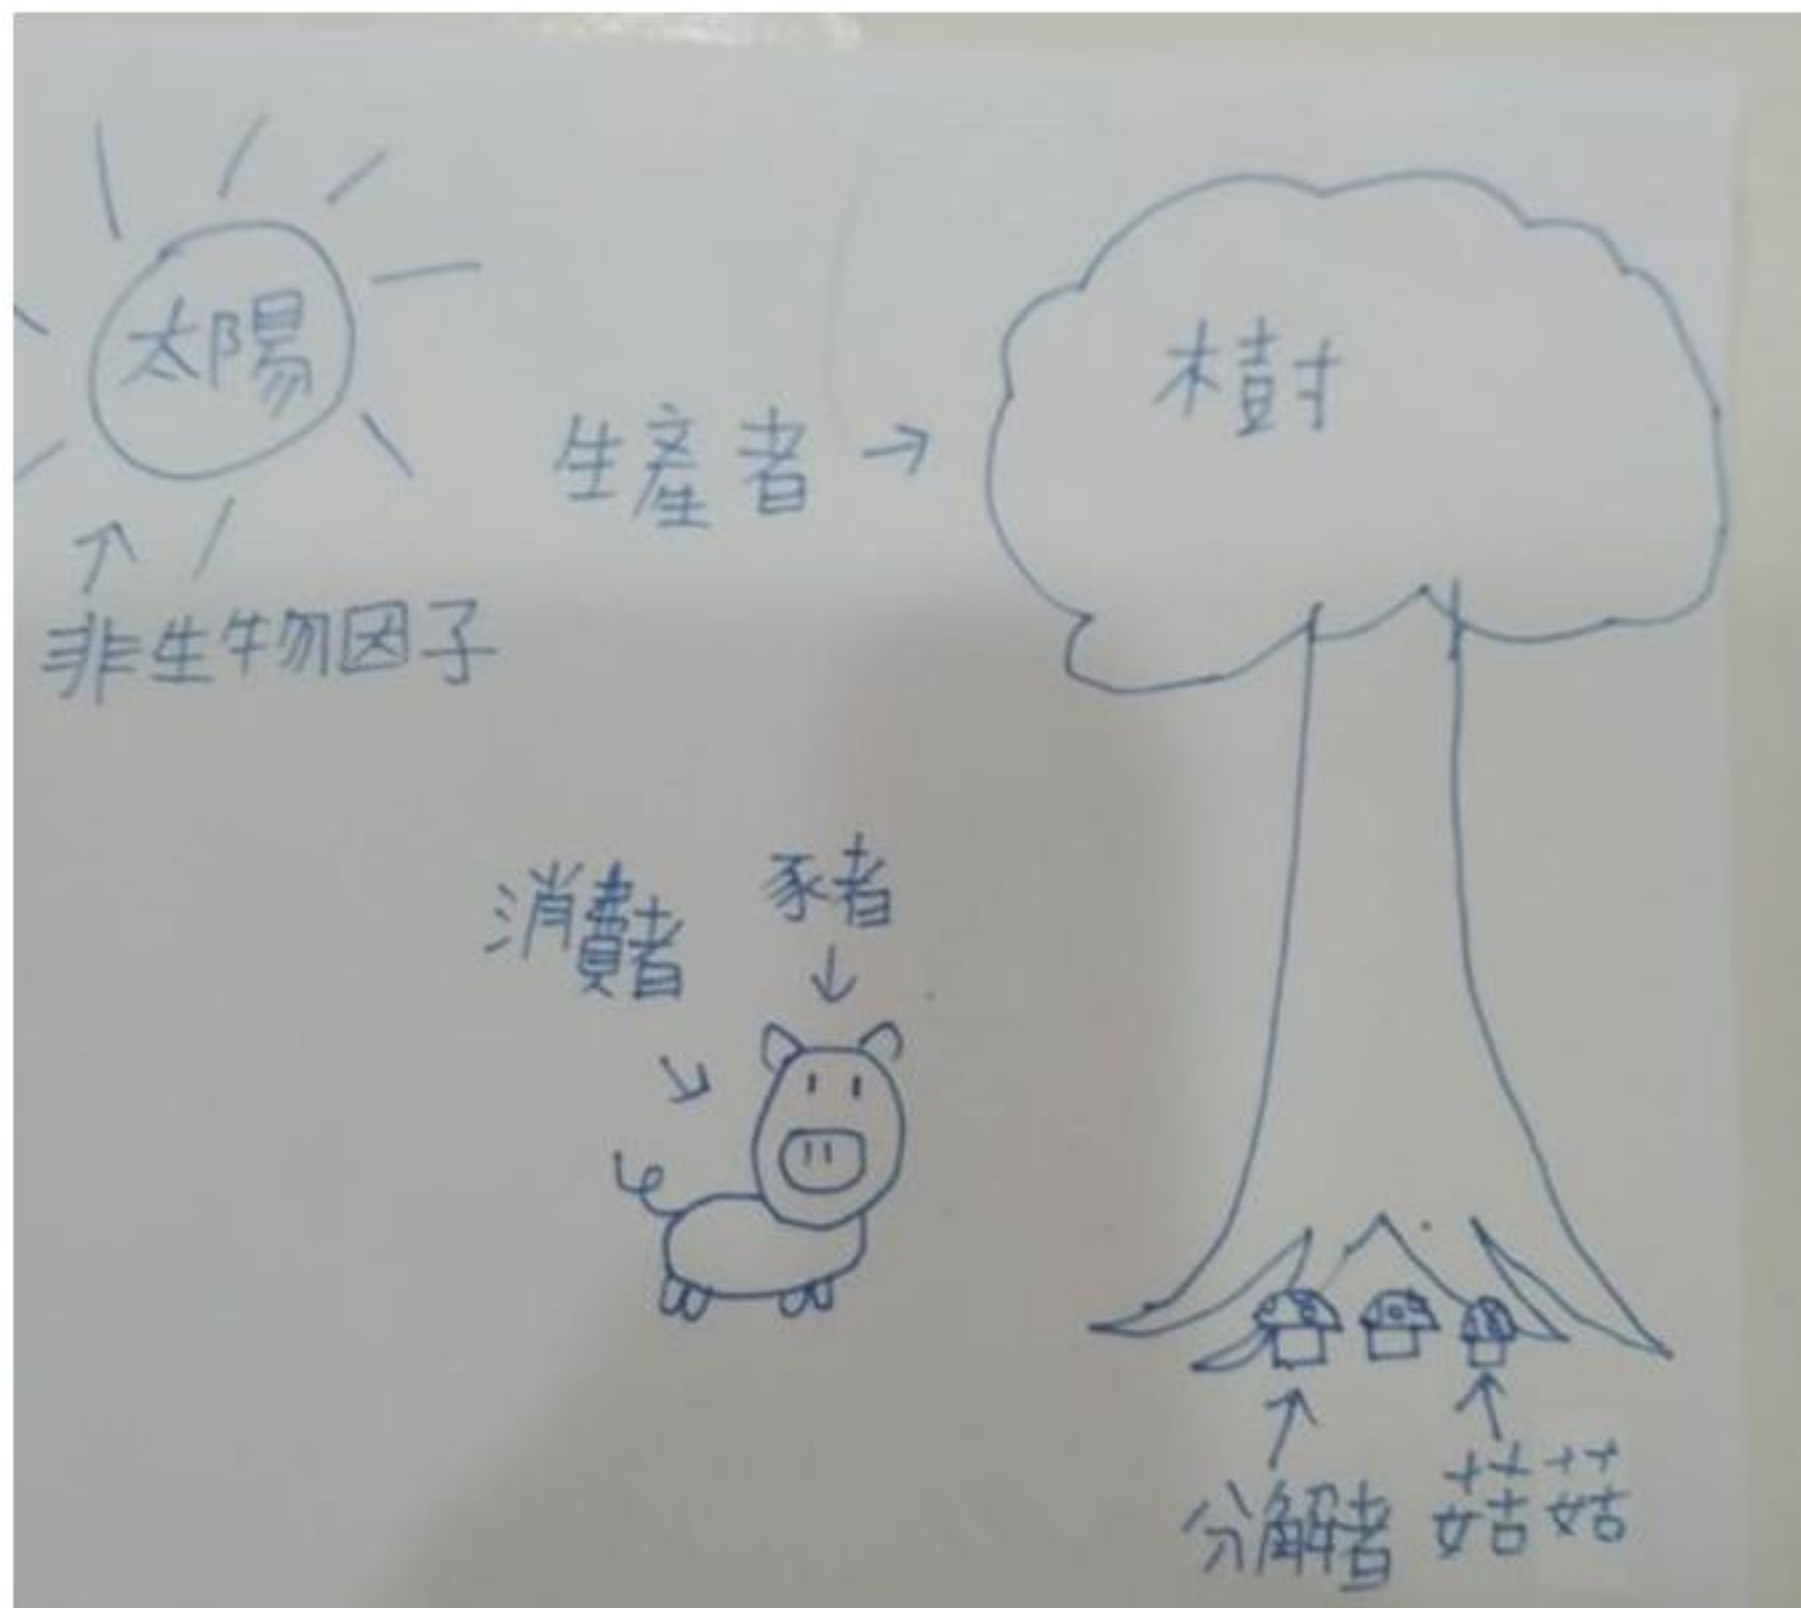 太陽
生產者→
樹
↑
非生物因子
消費者
↘
豬
↓
↑
分解者
↑
菇菇